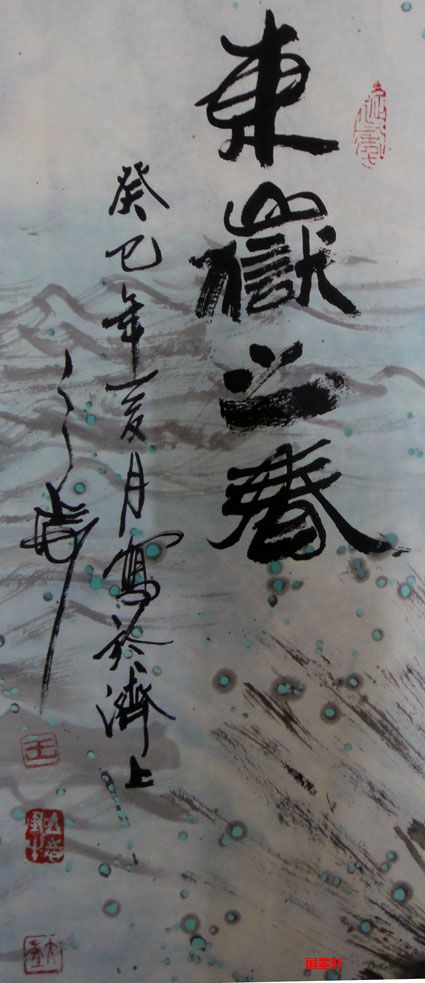 東嶽之春
癸巳年夏月寫於濟上
国墨轩